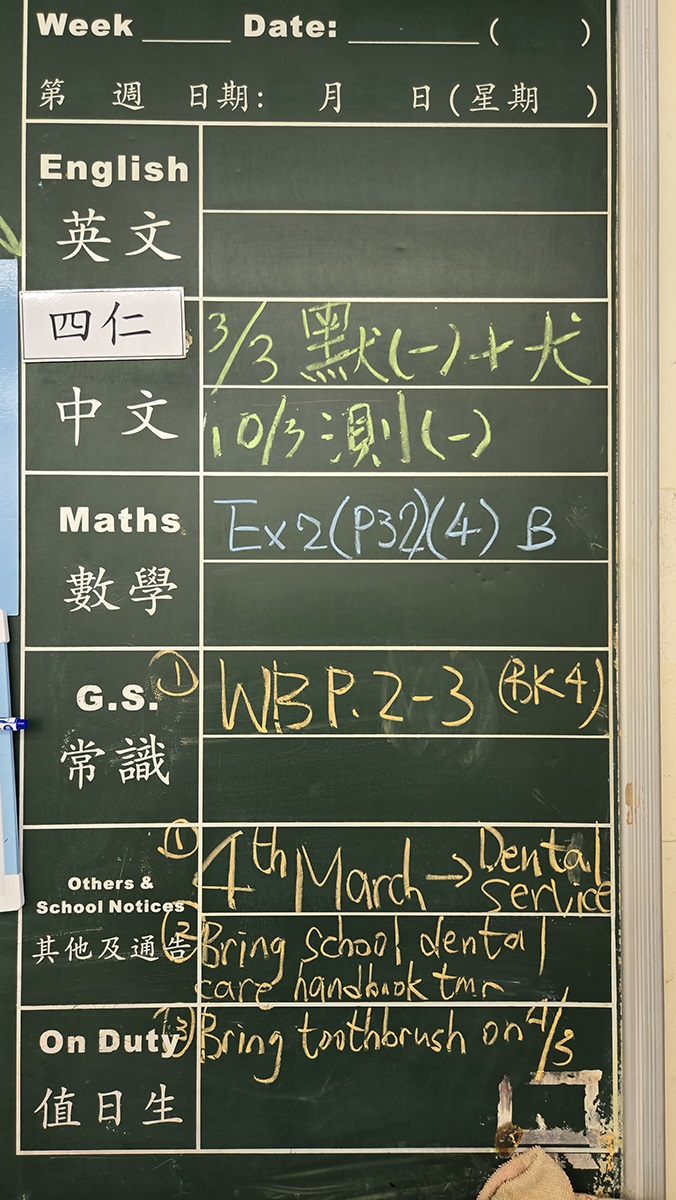 Week ____ Date: ________ (    )
第 週 日期: 月 日(星期 )
English
英文
四仁
3/3 默(一)+犬
中文
10/3 測(一)
Maths
Ex2(P32)(4) B
數學
G.S.
① WB P.2-3 (BK4)
常識
① 4th March → Dental service
Others &
School Notices
其他及通告
② Bring school dental
care handbook tmr
On Duty
③ Bring toothbrush on 4/3
值日生